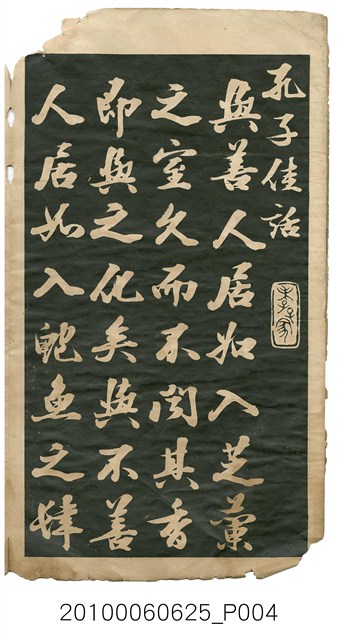 孔子佳話
與善人居如入芝蘭
之室久而不聞其香
即與之化矣與不善
人居如入鮑魚之肆
20100060625_P004